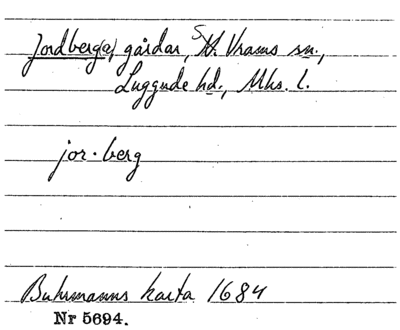 Jordberg(a), gårdar, N. Vrams sn.,
Luggude hd., Mhs. l.
jor-berg
Buhrmanns karta 1684
Nr 5694.